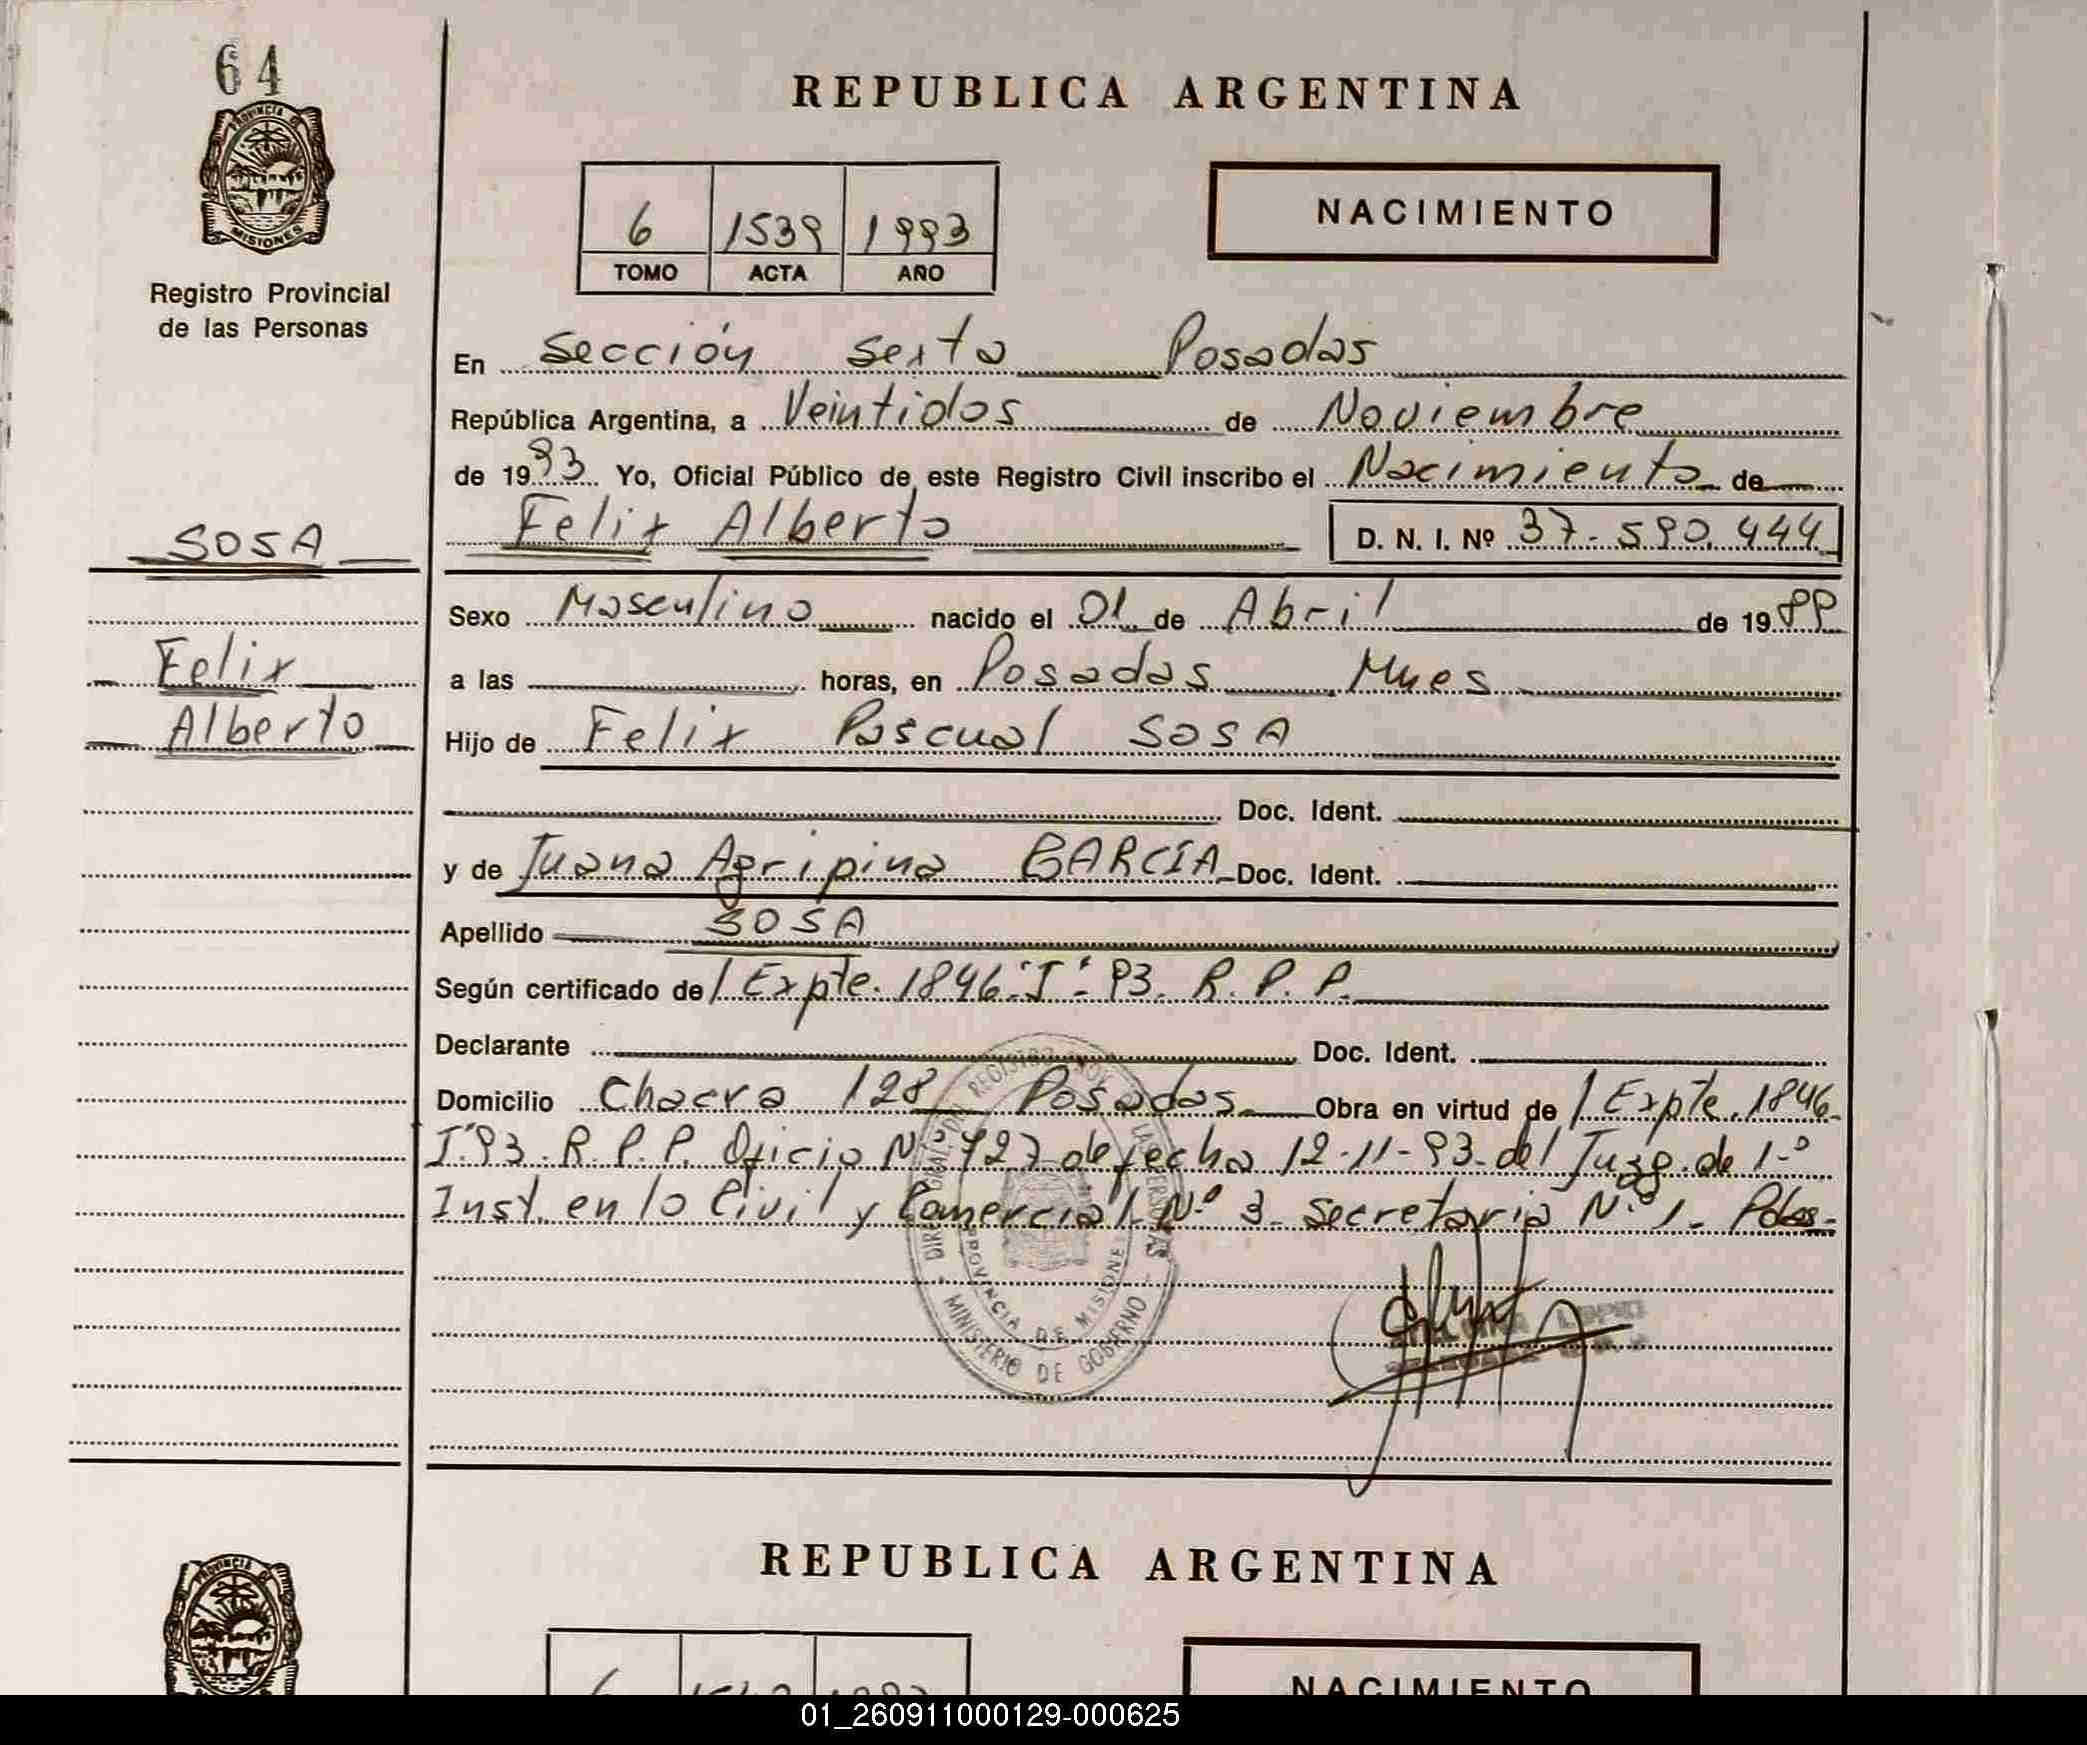 64
PROVINCIA DE
MISIONES
Registro Provincial
de las Personas
REPUBLICA ARGENTINA
6 1539 1993
TOMO ACTA AÑO
NACIMIENTO
En Sección Sexta Posadas
República Argentina, a Veintidos de Noviembre
de 1993 Yo, Oficial Público de este Registro Civil inscribo el Nacimiento de
Felix Alberto D. N. I. Nº 37.590.444
SOSA
Felix
Alberto
Sexo Masculino nacido el 01 de Abril de 19
a las horas, en Posadas Mnes
Hijo de Felix Pascual SOSA
Doc. Ident.
y de Juana Agripina GARCIA Doc. Ident.
Apellido SOSA
Según certificado de Expte. 1846 "I" 93. R. P. P.
Declarante Doc. Ident.
Domicilio Chacra 128 Posadas Obra en virtud de Expte. 1846
I"93. R. P. P. Oficio Nº 727 de fecha 12-11-93 del Juzg. de 1º
Inst. en lo Civil y Comercial Nº 3 Secretaria Nº 1. Pdas.
MINISTERIO DE GOBERNO
PROVINCIA DE MISIONES
REPUBLICA ARGENTINA
NACIMIENTO
PROVINCIA DE
01_260911000129-000625